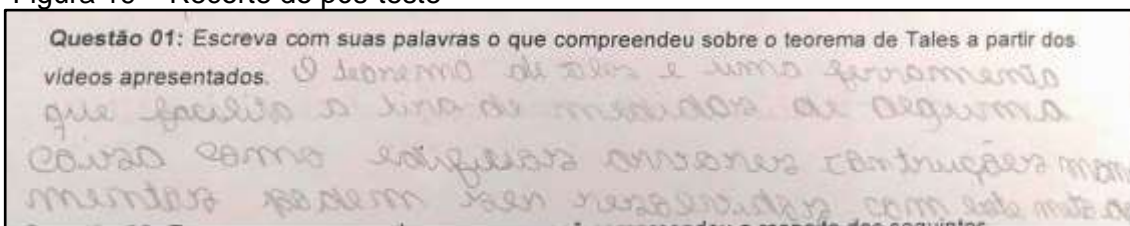 Questão 01: Escreva com suas palavras o que compreendeu sobre o teorema de Tales a partir dos
vídeos apresentados. O teorema de tales e uma ferramenta
que facilita a de medidas de alguma
coisa como edificios arvores contruções
podem ser resolvidas com este